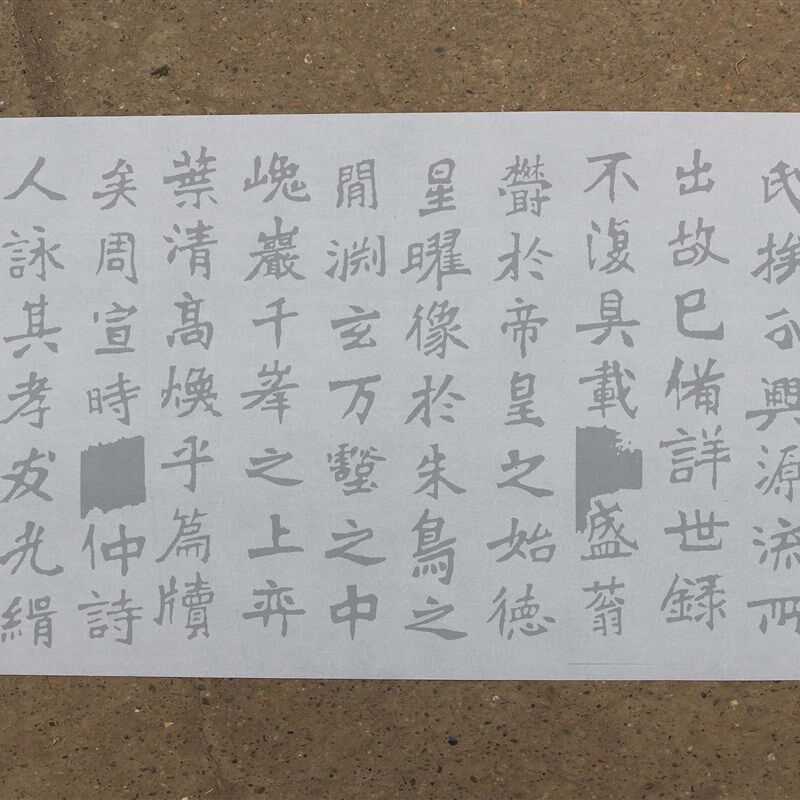 氏族分興源流所
出故已備詳世録
不復具載盛蓊
鬱於帝皇之始德
星曜像於朱鳥之
閒淵玄万壑之中
巉巖千峯之上弈
葉清高煥乎篇牘
矣周宣時仲詩
人詠其孝友光緝